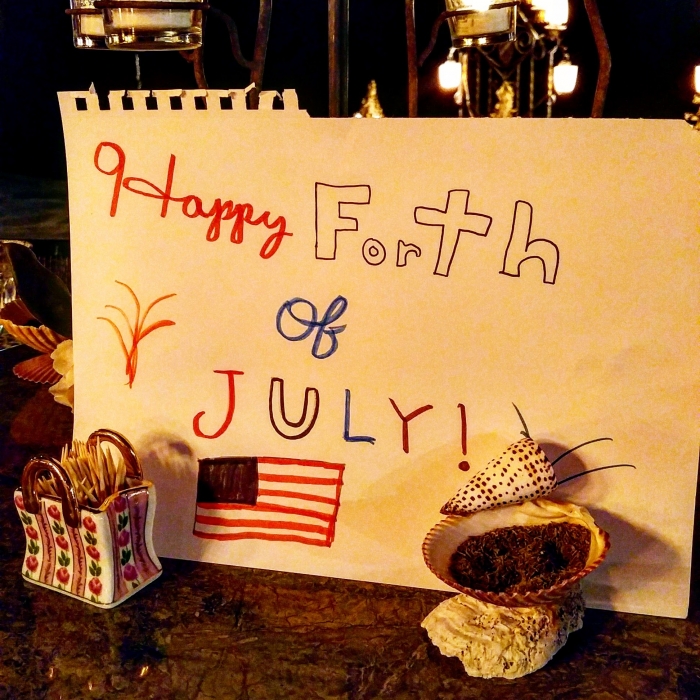 Happy ForTh
Of
JULY!